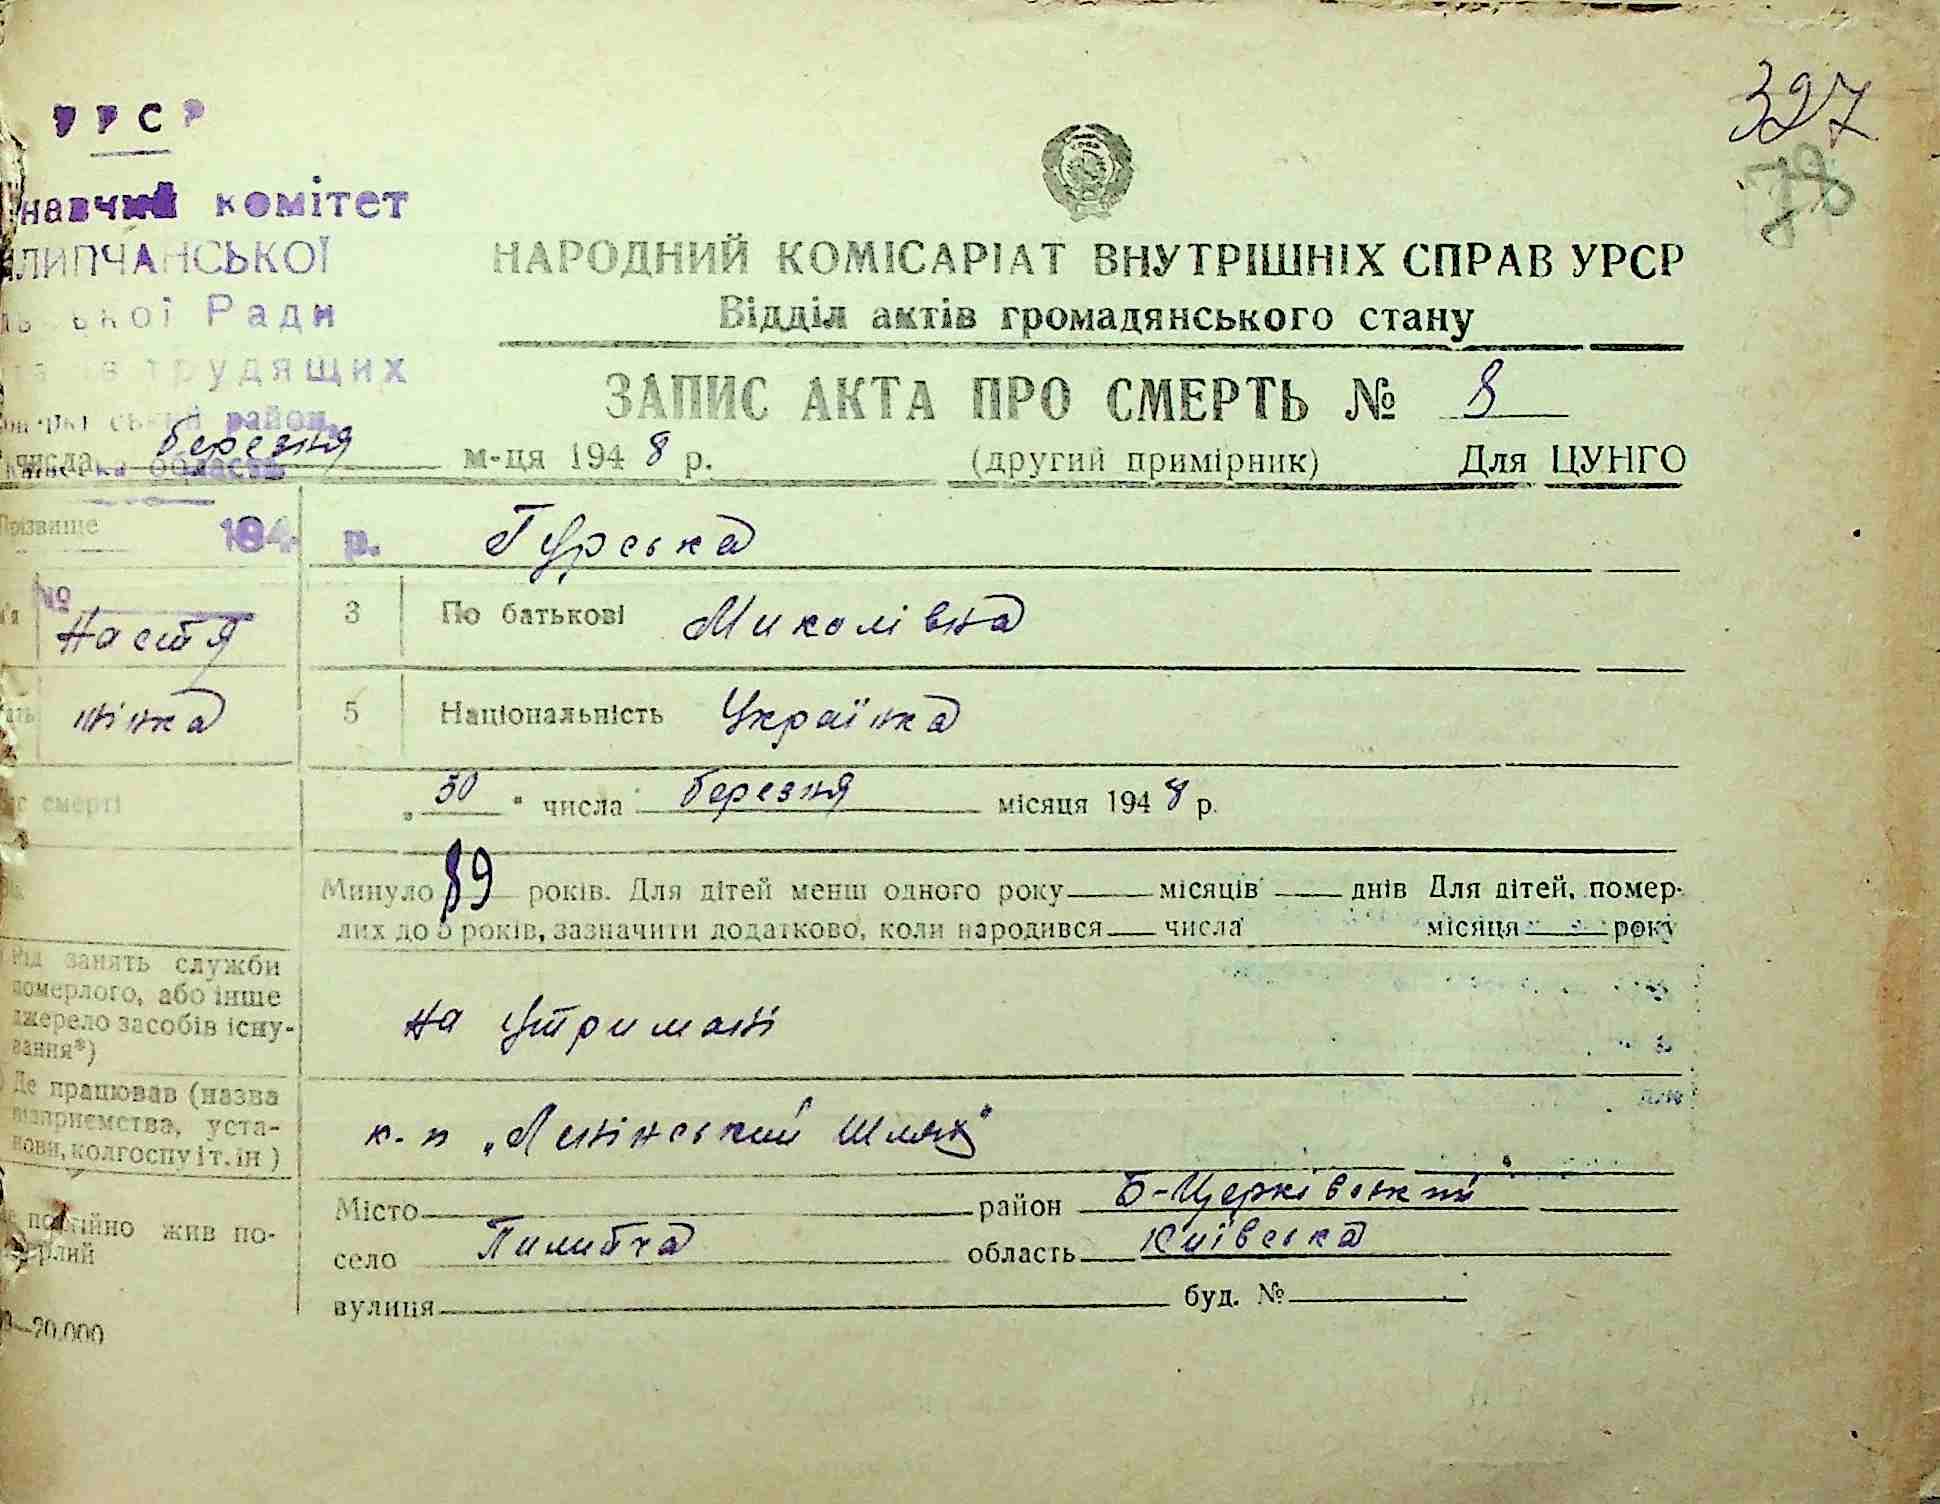 327
78
УРСР
навчий комітет
ЛИПЧАНСЬКОЇ
ської Ради
трудящих
район
область
НАРОДНИЙ КОМІСАРІАТ ВНУТРІШНІХ СПРАВ УРСР
Відділ актів громадянського стану
ЗАПИС АКТА ПРО СМЕРТЬ № 8
числа березня м-ця 1948 р. (другий примірник) Для ЦУНГО
Прізвище 194 р. Гурська
№
Настя 3 По батькові Миколівна
жінка 5 Національність Українка
смерті „30“ числа березня місяця 1948 р.
Минуло 89 років. Для дітей менш одного року місяців днів Для дітей, помер-
лих до 5 років, зазначити додатково, коли народився числа місяця року
Рід занять служби
померлого, або інше
джерело засобів існу-
вання*)
на утримані
Де працював (назва
підприємства, уста-
нови, колгоспу і т. ін)
к-п „Ленінський шлях"
постійно жив по-
мерлий
Місто район Б-Церківський
село Пилипча область Київська
вулиця буд. №
20.000